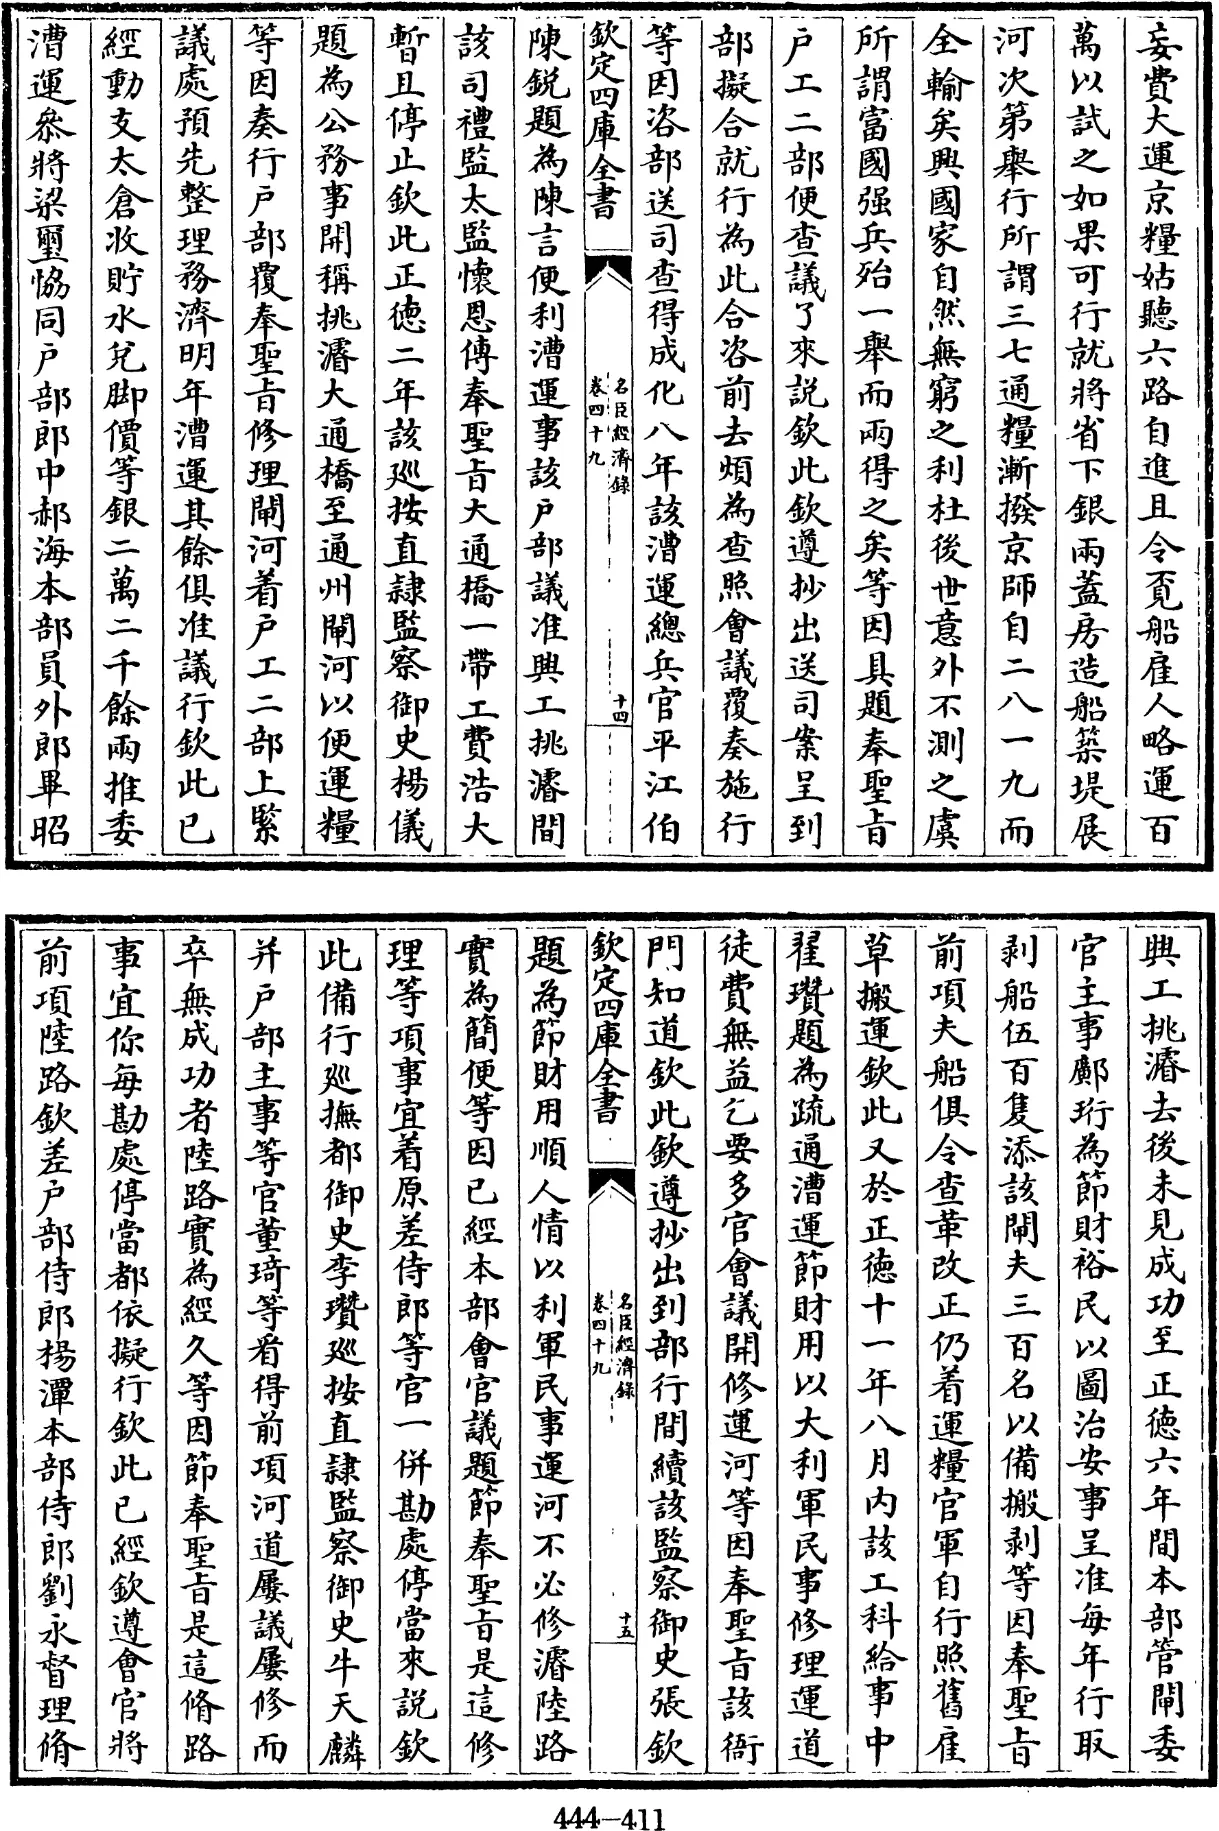 妄費大運京糧姑聽六路自進且令覔船雇人略運百
萬以試之如果可行就將省下銀兩蓋房造船築堤展
河次第舉行所謂三七通糧漸撥京師自二八一九而
全輸矣興國家自然無窮之利杜後世意外不測之虞
所謂富國强兵殆一舉而兩得之矣等因具題奉聖旨
户工二部便查議了來説欽此欽遵抄出送司案呈到
部擬合就行為此合咨前去煩為查照會議覆奏施行
等因咨部送司查得成化八年該漕運總兵官平江伯
欽定四庫全書
名臣經濟録
卷四十九
十四
陳鋭題為陳言便利漕運事該户部議准興工挑濬間
該司禮監太監懷恩傳奉聖旨大通橋一帶工費浩大
暫且停止欽此正德二年該廵按直隷監察御史楊儀
題為公務事開稱挑濬大通橋至通州閘河以便運糧
等因奏行户部覆奉聖旨修理閘河着户工二部上緊
議處預先整理務濟明年漕運其餘俱准議行欽此已
經動支太倉收貯水兌脚價等銀二萬二千餘兩推委
漕運叅將梁璽恊同户部郎中郝海本部員外郎畢昭
興工挑濬去後未見成功至正德六年間本部管閘委
官主事鄺珩為節財裕民以圖治安事呈准每年行取
剥船伍百隻添該閘夫三百名以備搬剥等因奉聖旨
前項夫船俱令查革改正仍着運糧官軍自行照舊雇
草搬運欽此又於正德十一年八月内該工科給事中
翟瓚題為疏通漕運節財用以大利軍民事修理運道
徒費無益乞要多官會議開修運河等因奉聖旨該衙
門知道欽此欽遵抄出到部行間續該監察御史張欽
欽定四庫全書
名臣經濟録
卷四十九
十五
題為節財用順人情以利軍民事運河不必修濬陸路
實為簡便等因已經本部會官議題節奉聖旨是這修
理等項事宜着原差侍郎等官一併勘處停當來説欽
此備行廵撫都御史李瓚廵按直隷監察御史牛天麟
并户部主事等官董琦等看得前項河道屢議屢修而
卒無成功者陸路實為經久等因節奉聖旨是這脩路
事宜你每勘處停當都依擬行欽此已經欽遵會官將
前項陸路欽差户部侍郎楊潭本部侍郎劉永督理脩
444-411